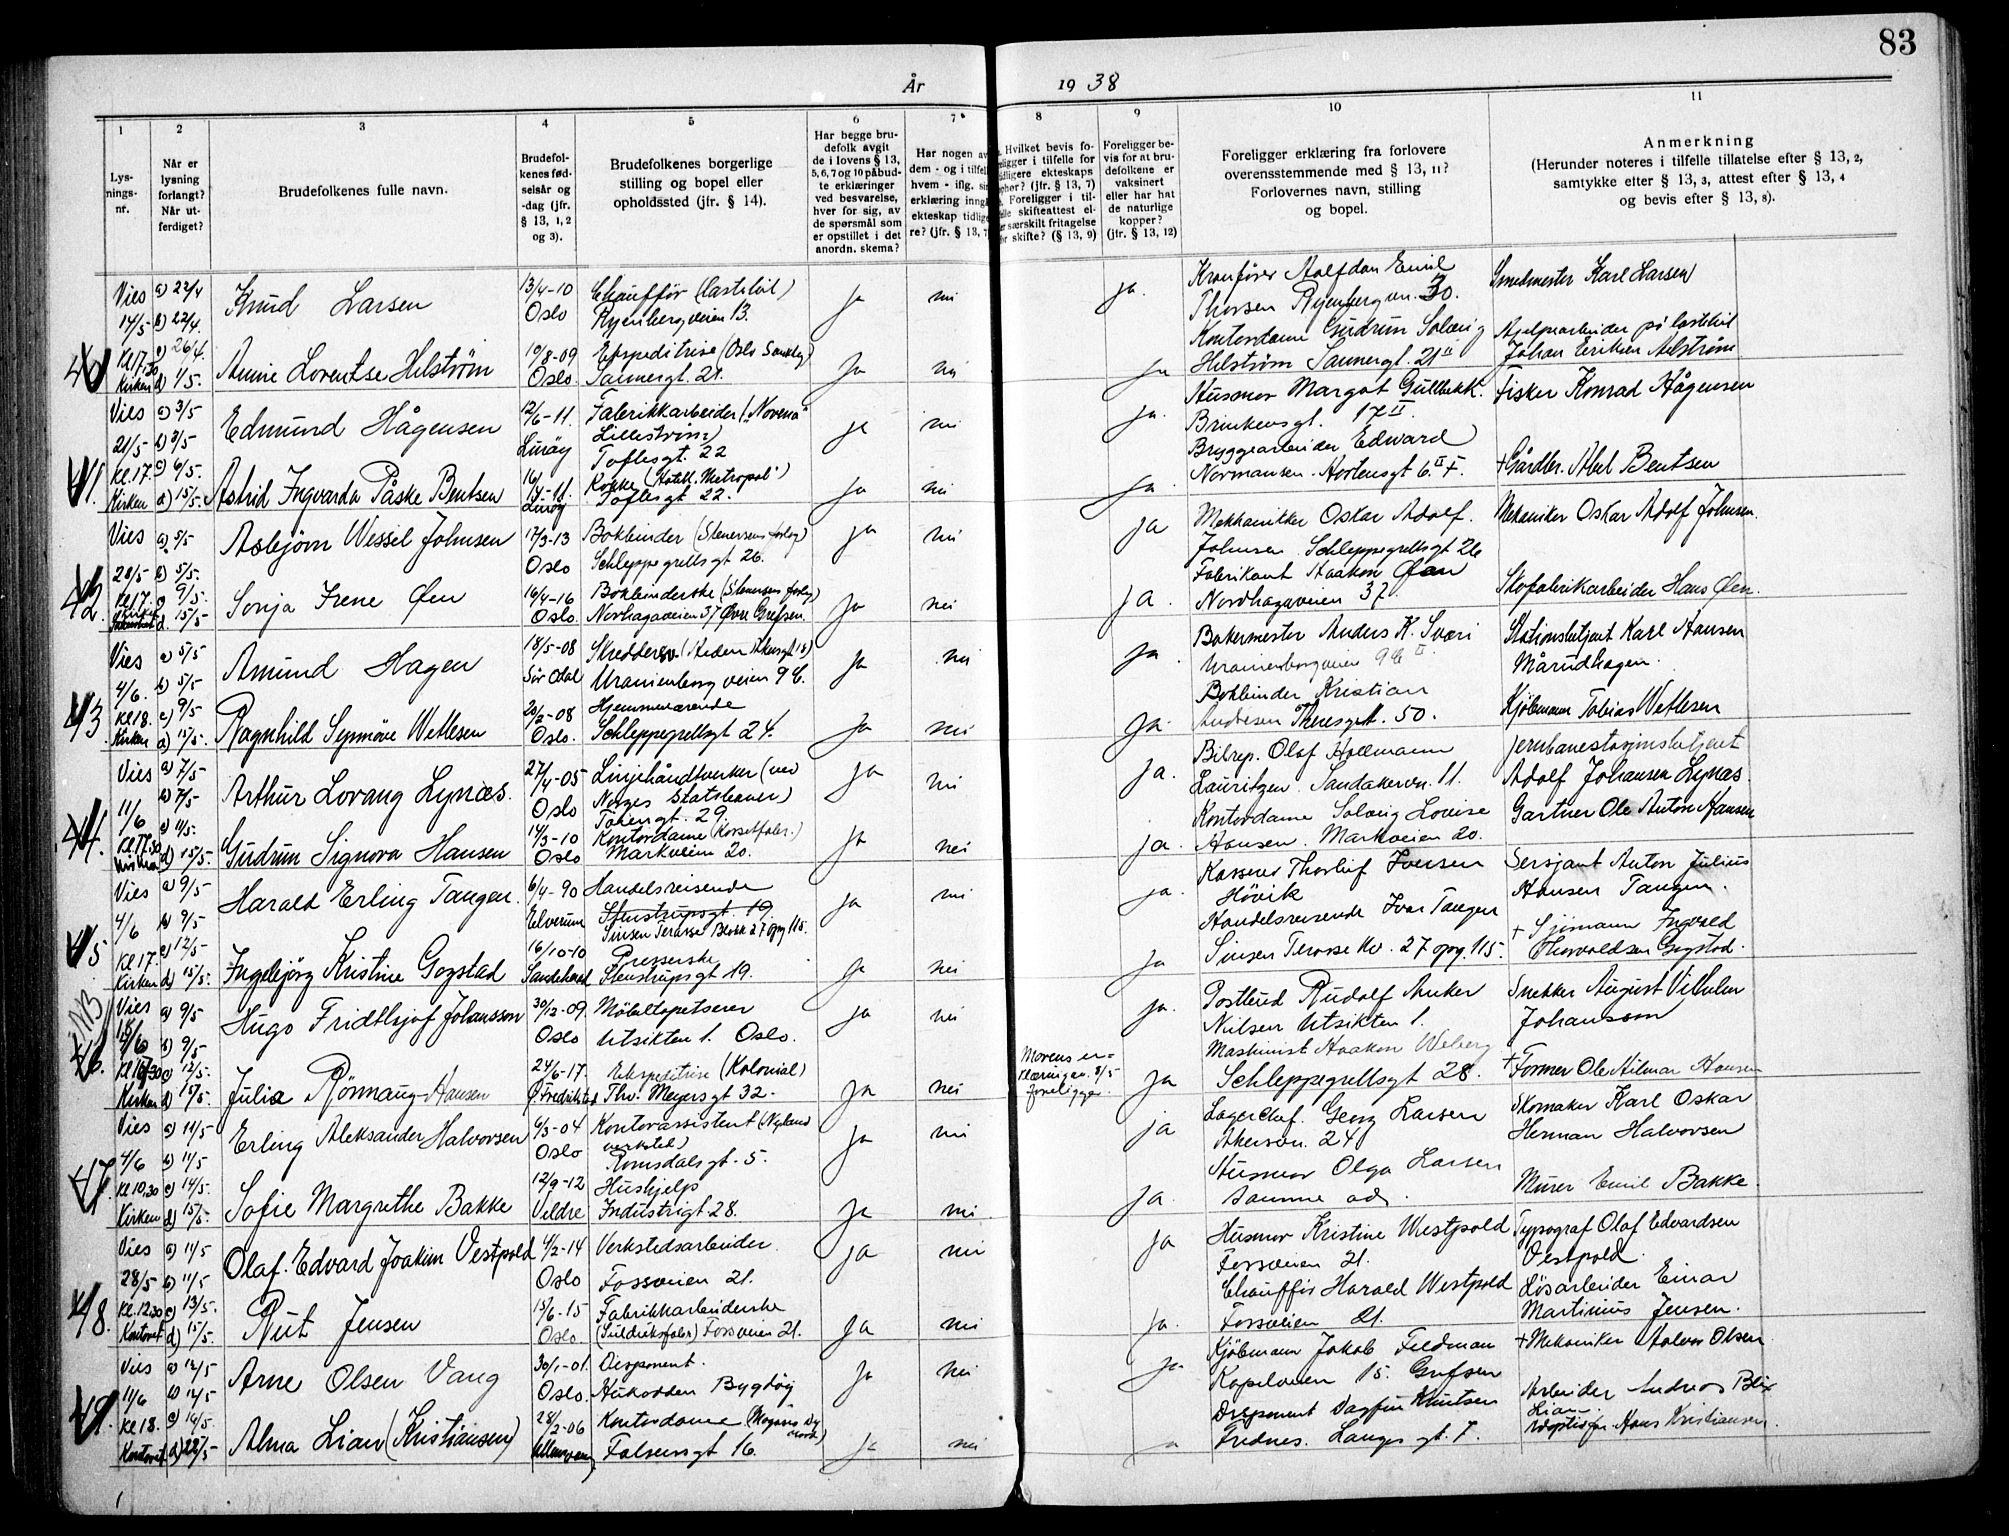 83
År 1938
1
2
3
4
5
6
7
8
9
10
11
Lys-
nings-
nr.
Når er
lysning
forlangt?
Når ut-
ferdiget?
Brudefolkenes fulle navn.
Brudefol-
kenes fød-
selsår og
-dag (jfr.
§ 13, 1, 2
og 3).
Brudefolkenes borgerlige
stilling og bopel eller
opholdssted (jfr. § 14).
Har begge bru-
defolk avgit
de i lovens § 13,
5, 6, 7 og 10 påbud-
te erklæringer
ved besvarelse,
hver for sig, av
de spørsmål som
er opstillet i det
anordn. skema?
Har nogen av
dem - og i tilfel
hvem - iflg. sin
erklæring inngå
ekteskap tidlige
re? (jfr. § 13, 7
Hvilket bevis fo-
religger i tilfelle for
tidligere ekteskaps
ophør? (jfr. § 13, 7)
Foreligger i til-
felle skifteattest el-
ler særskilt fritagelse
for skifte? (§ 13, 9)
Foreligger be-
vis for at bru-
defolkene er
vaksinert
eller har hat
de naturlige
kopper?
(jfr. § 13, 12)
Foreligger erklæring fra forlovere
overensstemmende med § 13, 11?
Forlovernes navn, stilling
og bopel.
Anmerkning
(Herunder noteres i tilfelle tillatelse efter § 13, 2,
samtykke efter § 13, 3, attest efter § 13, 4
og bevis efter § 13, 8).
40
Vies 14/5 Kl 17.30 Kirken
a) 22/4
b) 22/4.
c) 26/4.
d) 1/5.
Knud Larsen
13/4-10
Oslo
Chauffør (Lastebil)
Ryenbergveien 13.
ja nei ja.
Thorsen Ryenbergvn. 30.
Smedmester Karl Larsen
Annie Lorentse Helstrøm
10/8-09
Oslo
Ekspeditrise
Sannergt. 21.
ja nei ja
Kontordame Gudrun Solveig
Helstrøm Sannergt. 21 II
Johan Eriksen
41.
Vies 21/5 Kl. 17. Kirken
a) 3/5
b) 3/5
c) 6/5.
d) 15/5.
Edmund Hågensen
12/6-11.
Lurøy
Fabrikkarbeider ("Norema"
Lillestrøm)
Toftesgt. 22
ja nei ja.
Husmor Margot Gullbekk.
Brinkensgt. 17 II.
Fisker Konrad Hågensen
Astrid Ingvarda Påske Bentsen
Lurøy
Kokke (Hotell "Metropol")
Toftesgt 22.
ja nei ja.
Bryggearbeider Edward
Normansen. Hortensgt 6.
+Gårdbr. Abel Bentsen
42.
Vies 28/5 Kl 17.
a) 5/5
b) 5/5.
c) 9/5.
d. 15/5
Asbjørn Wessel Johnsen
17/3-13
Oslo
Bokbinder (Stenersens forlag)
Schleppegrellsgt 26.
ja nei ja
Mekhanikker Oskar Adolf.
Johnsen. Schleppegrellsgt 26
Mekaniker Oskar Adolf Johnsen.
Sonja Irene Øen
16/4-16
Oslo.
Bokbinderske (Stenersens forlag)
Nordhagaveien 37 Øvre Grefsen
ja nei ja.
Fabrikant Haakon Øen
Nordhagaveien 37.
Skofabrikarbeider Hans Øen.
43
Vies 4/6. Kl 18. Kirken
a) 5/5
b) 5/5
c) 9/5
d) 15/5.
Amund Hagen
18/5-08
Sør Odal
Uranienborgveien 9 b.
ja nei ja.
Bakermester Anders K.
Uranienborgveien 9 b II
Stationsbetjent Karl Hansen
Mårudhagen.
Ragnhild Synnøve Wetlesen
20/2-08
Oslo.
Hjemmeværende
Schleppegrellsgt 24.
ja nei ja.
Bokbinder Kristian
Andresen Theresgt. 50.
Kjøbmann Tobias Wetlesen
44.
Vies 11/6 Kl 17.30
a) 7/5
b) 7/5
c) 11/5.
d) 15/5.
Arthur Lovang Lynæs.
27/4-05
Oslo
Linjehåndtverker (ved
Norges Statsbaner)
Tøiengt. 29.
ja nei ja.
Bilrep. Olaf
Lauritzen. Sandakervn. 11.
Jernbanestasjonsbetjent
Adolf Johansen Lynæs.
Gudrun Signora Hansen
14/3-10
Oslo
Kontordame (Korsettfabr.)
Markveien 20.
ja nei ja.
Kontordame Solveig Lovise
Hansen. Markveien 20.
Gartner Ole Anton Hansen
45
Vies 4/6 Kl 17. Kirken
a) 9/5
b) 9/5
c) 12/5
d) 15/5.
Harald Erling Tangen.
6/4-90
Elverum
Handelsreisende
Stenstrupsgt. 19.
Sinsen Terasse Blokk 27 opg 115.
ja nei ja.
Kasserer Thorleif Iversen
Høvik
Sersjant Anton Julius
Hansen Tangen.
Ingebjørg Kristine Gogstad
16/10-10
Presserske
Stenstrupsgt 19.
ja nei ja
Handelsreisende Ivar Tangen
Sinsen Terasse kv. 27 opg. 115.
+ Sjømann Ingvald
Thorvaldsen Gogstad.
NB
46.
Vies Kirken
a) 9/5
b) 9/5
c) 12/5
d) 15/5.
Hugo Fridthjof Johansson
30/12-09
Oslo
Møbeltapetserer
Utsikten 1. Oslo.
ja nei ja.
Postbud Rudolf Anker
Nilsen Utsikten 1.
Snekker August Vilhelm
Johansson
Julia Rønnaug Hansen
24/6-17.
Ø Fredrikstad
Ekspeditrise (Kolonial)
Thv. Meyersgt 32.
ja nei
Morens er-
klæring av 8/5
foreligger.
ja
Maskinist Haakon Weberg
Schleppegrellsgt 28.
+Former Ole Hilmar Hansen
47.
Vies 4/6 Kl 10,30 Kirken
a) 11/5
b) 11/5
c) 14/5.
d) 15/5.
Erling Aleksander Halvorsen
6/3-04
Oslo
Kontorassistent (Nyland
verksted)
Romsdalsgt. 5.
ja nei ja
Lagerchef. Georg Larsen
Akersvn. 24
Skomaker Karl Oskar
Herman Halvorsen
Sofie Margrethe Bakke
12/9-12
Veldre
Hushjelp
Industrigt 28.
ja nei ja.
Husmor Olga Larsen
samme ad.
Murer Emil Bakke
48.
Vies 28/5 Kl. 12.30 Kontoret
a) 11/5
b) 11/5
c) 13/5.
d) 15/5.
Olaf. Edvard Joakim Vestpold
4/2-14
Oslo
Verkstedsarbeider.
Fossveien 21.
ja nei ja
Husmor Kristine Westpold
Fossveien 21.
Typograf Olaf Edvardsen
Vestpold.
Rut Jensen
15/6-15
Oslo.
Fabrikkarbeiderske
Fossveien 21.
ja nei ja.
Chauffør Harald Westpold
Fossveien 21.
Løsarbeider Einar
Martinius Jensen.
49.
Vies 11/6 Kl 18. Kontoret
a) 12/5
b) 12/5
c) 16/5.
d) 22/5
Arne Olsen Vang
30/1-01.
Oslo.
Disponent.
Hukodden Bygdøy
ja nei ja.
Kjøbmann Jakob Feldman
Kapelveien 15. Grefsen
+Mekaniker Halvor Olsen
Alma Lian (Kristiansen)
28/2-06
Ullensvang
Kontordame
Falsensgt 16.
ja nei ja
Disponent Dagfin Knutsen
Frednes. Langes gt. 7.
Arbeider Andreas
Lian.
Adoptivfar Hans Kristiansen.